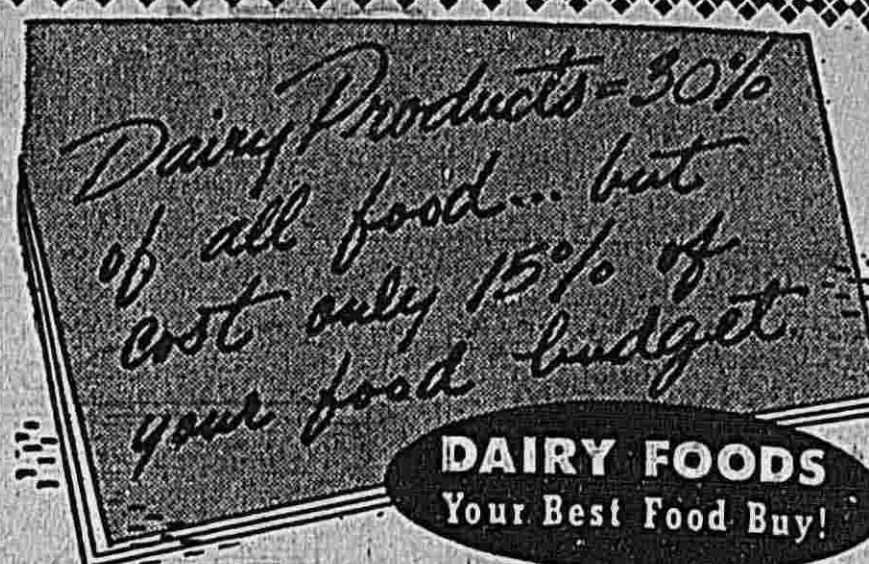 Dairy Products = 30%
of all food... but
cost only 15% of
your food budget
DAIRY FOODS
Your Best Food Buy!